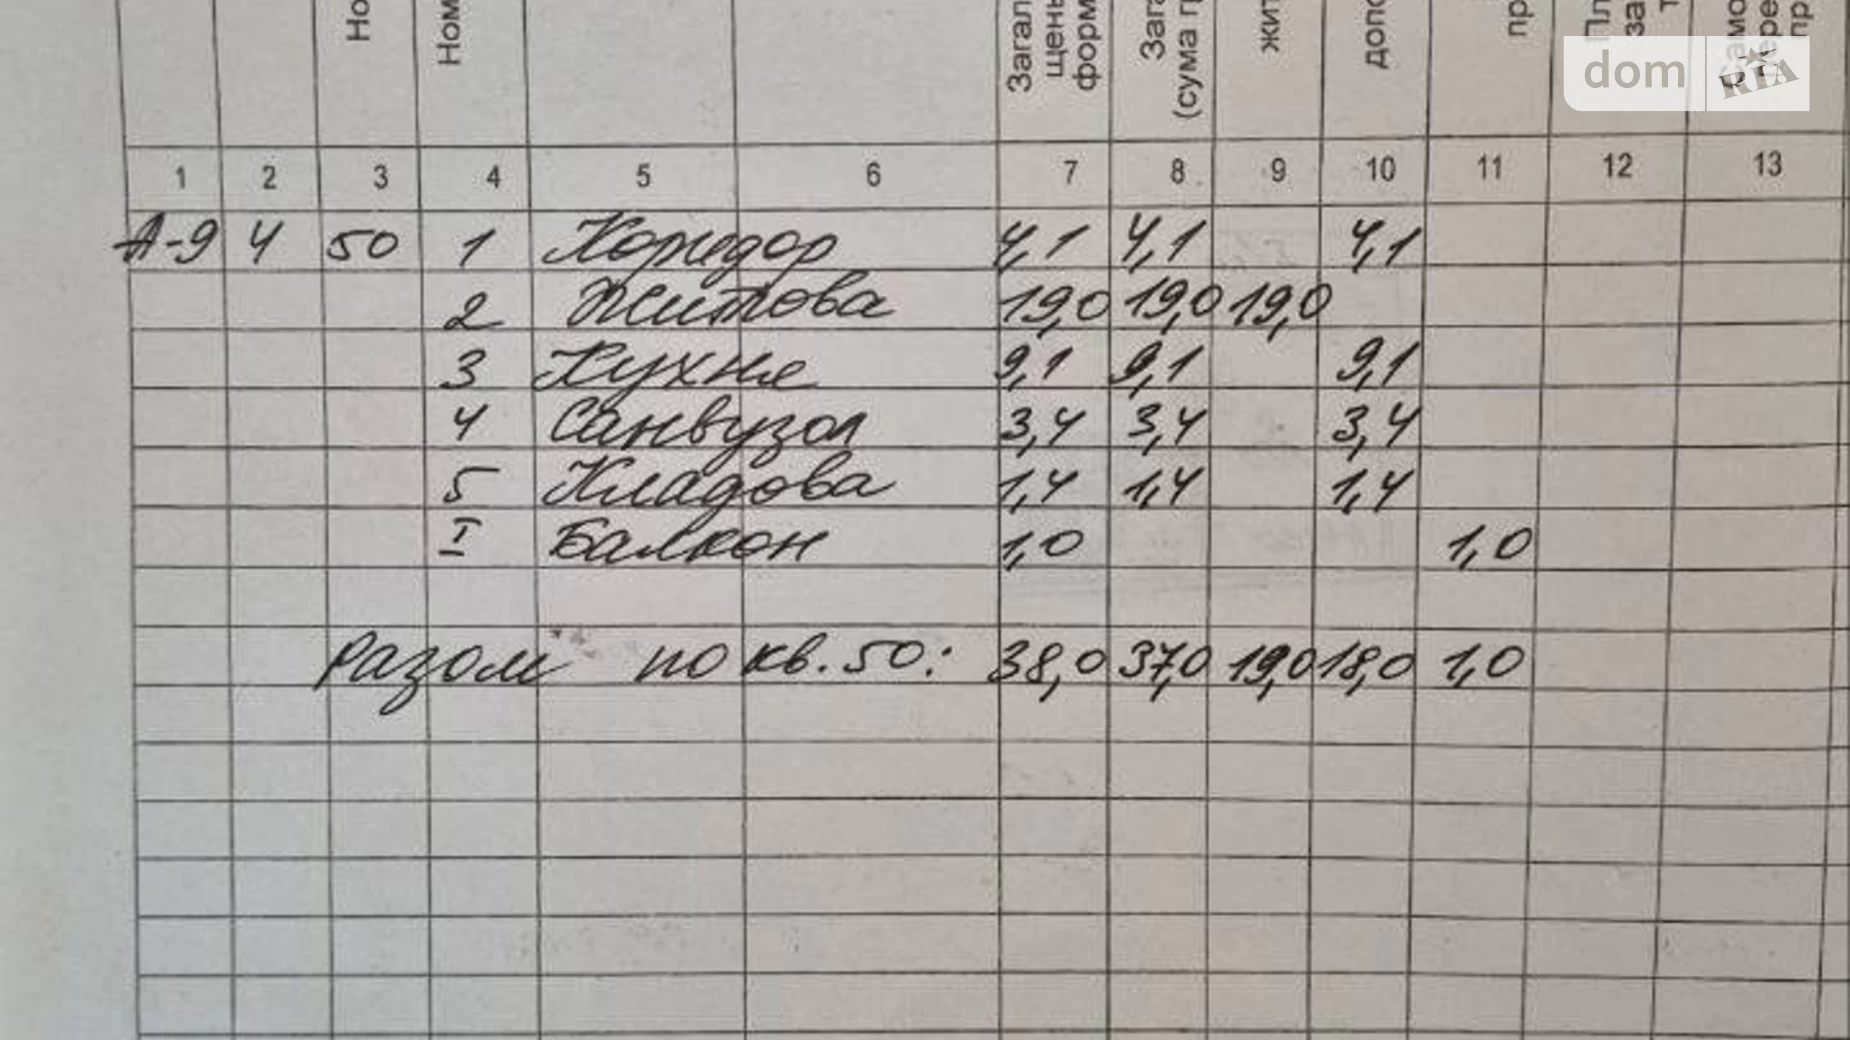 Но
Ном
Загал
щень
форм
Заг
(сума г
жит
допо
пр
Пл
за
т
амо
ере
пр
dom RIA
1 2 3 4 5 6 7 8 9 10 11 12 13
А-9 4 50 1 Коридор 4,1 4,1 4,1
2 Житова 19,0 19,0 19,0
3 Кухня 9,1 9,1 9,1
4 Санвузол 3,4 3,4 3,4
5 Кладова 1,4 1,4 1,4
I Балкон 1,0 1,0
Разом по кв. 50: 38,0 37,0 19,0 18,0 1,0